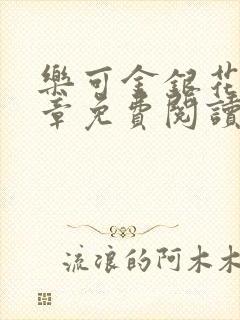 樂可金銀花
章免費閱讀
流浪的阿木木